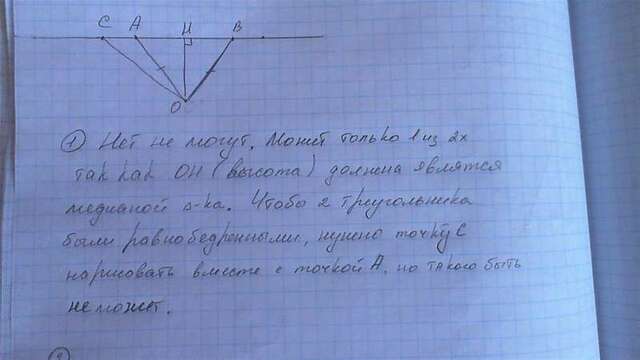 C A H B
O
1 Нет не могут. Может только 1 из 2х
так как OH (высота) должна являтся
медианой Δ-ка. Чтобы 2 треугольника
были равнобедренными, нужно точку C
нарисовать вместе с точкой A, но такого быть
не может.